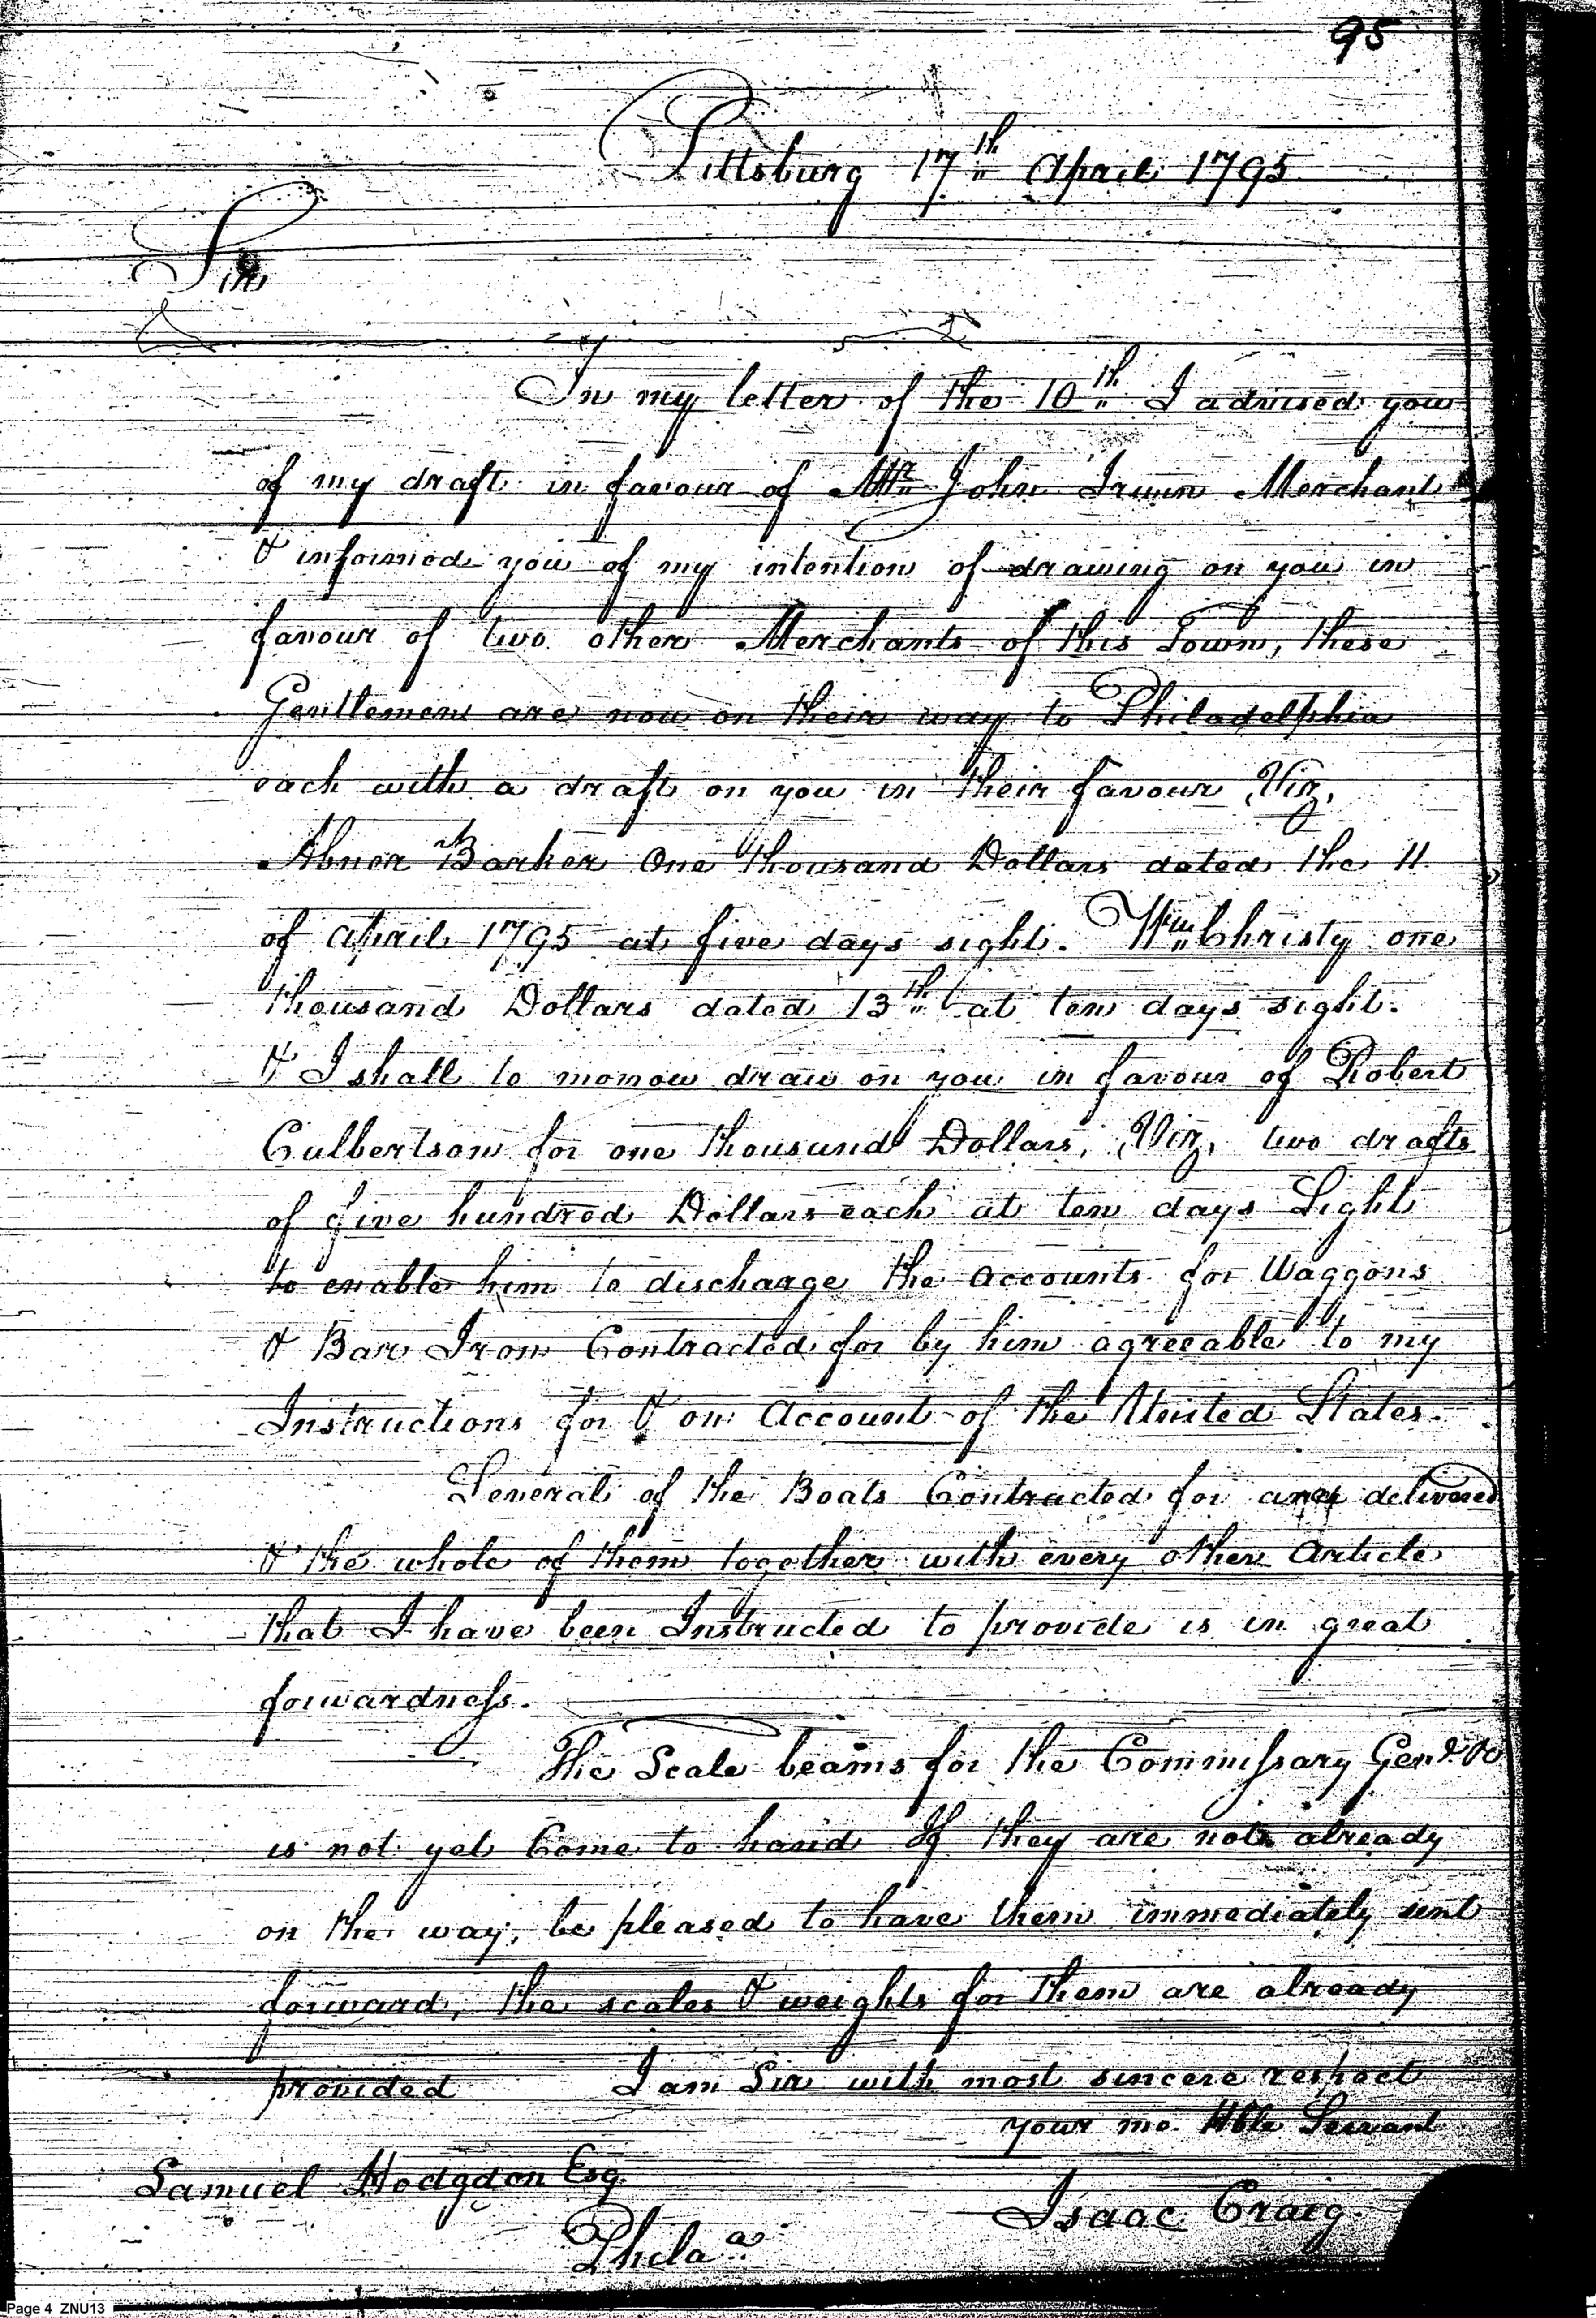 95
Pittsburg 17th April 1795
Sir
In my letter of the 10th I advised you
of my draft in favour of Mr John Irwin Merchant
& informed you of my intention of drawing on you in
favour of two other Merchants of this Town, these
Gentlemen are now on their way to Philadelphia
each with a draft on you in their favour Viz,
Abner Barker One thousand Dollars dated the 11
of April 1795 at five days sight. Wm Christy one
thousand Dollars dated 13th at ten days sight.
& I shall to morrow draw on you in favour of Robert
Culbertson for one thousand Dollars, Viz, two drafts
of five hundred Dollars each at ten days Sight
to enable him to discharge the accounts for Waggons
& Bar Iron Contracted for by him agreeable to my
Instructions for & on Account of the United States.
Several of the Boats Contracted for are delivered
& the whole of them together with every other Article
that I have been Instructed to provide is in great
forwardness.
The Scale beams for the Commissary Genl &c
is not yet Come to hand If they are not already
on the way, be pleased to have them immediately sent
forward, the scales & weights for them are already
provided I am Sir with most sincere respect
your mo. Hble Servant
Samuel Hodgdon Esq.
Isaac Craig.
Phila a.
Page 4 ZNU13